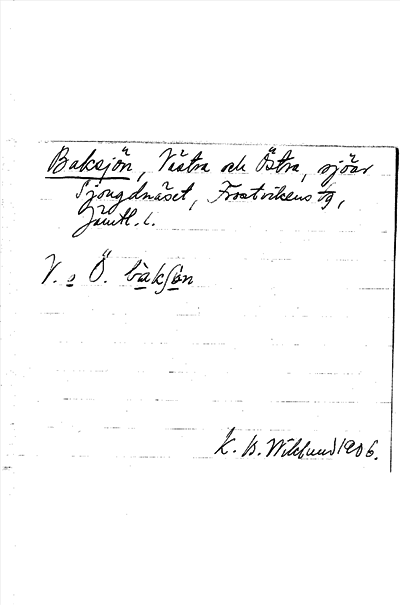 Baksjön, Västra och Östra, sjöar
Sjougdnäset, Frostvikens tg,
Jämtl. l.
V. o Ö. bàkʃön
K. B. Wiklund 1906.